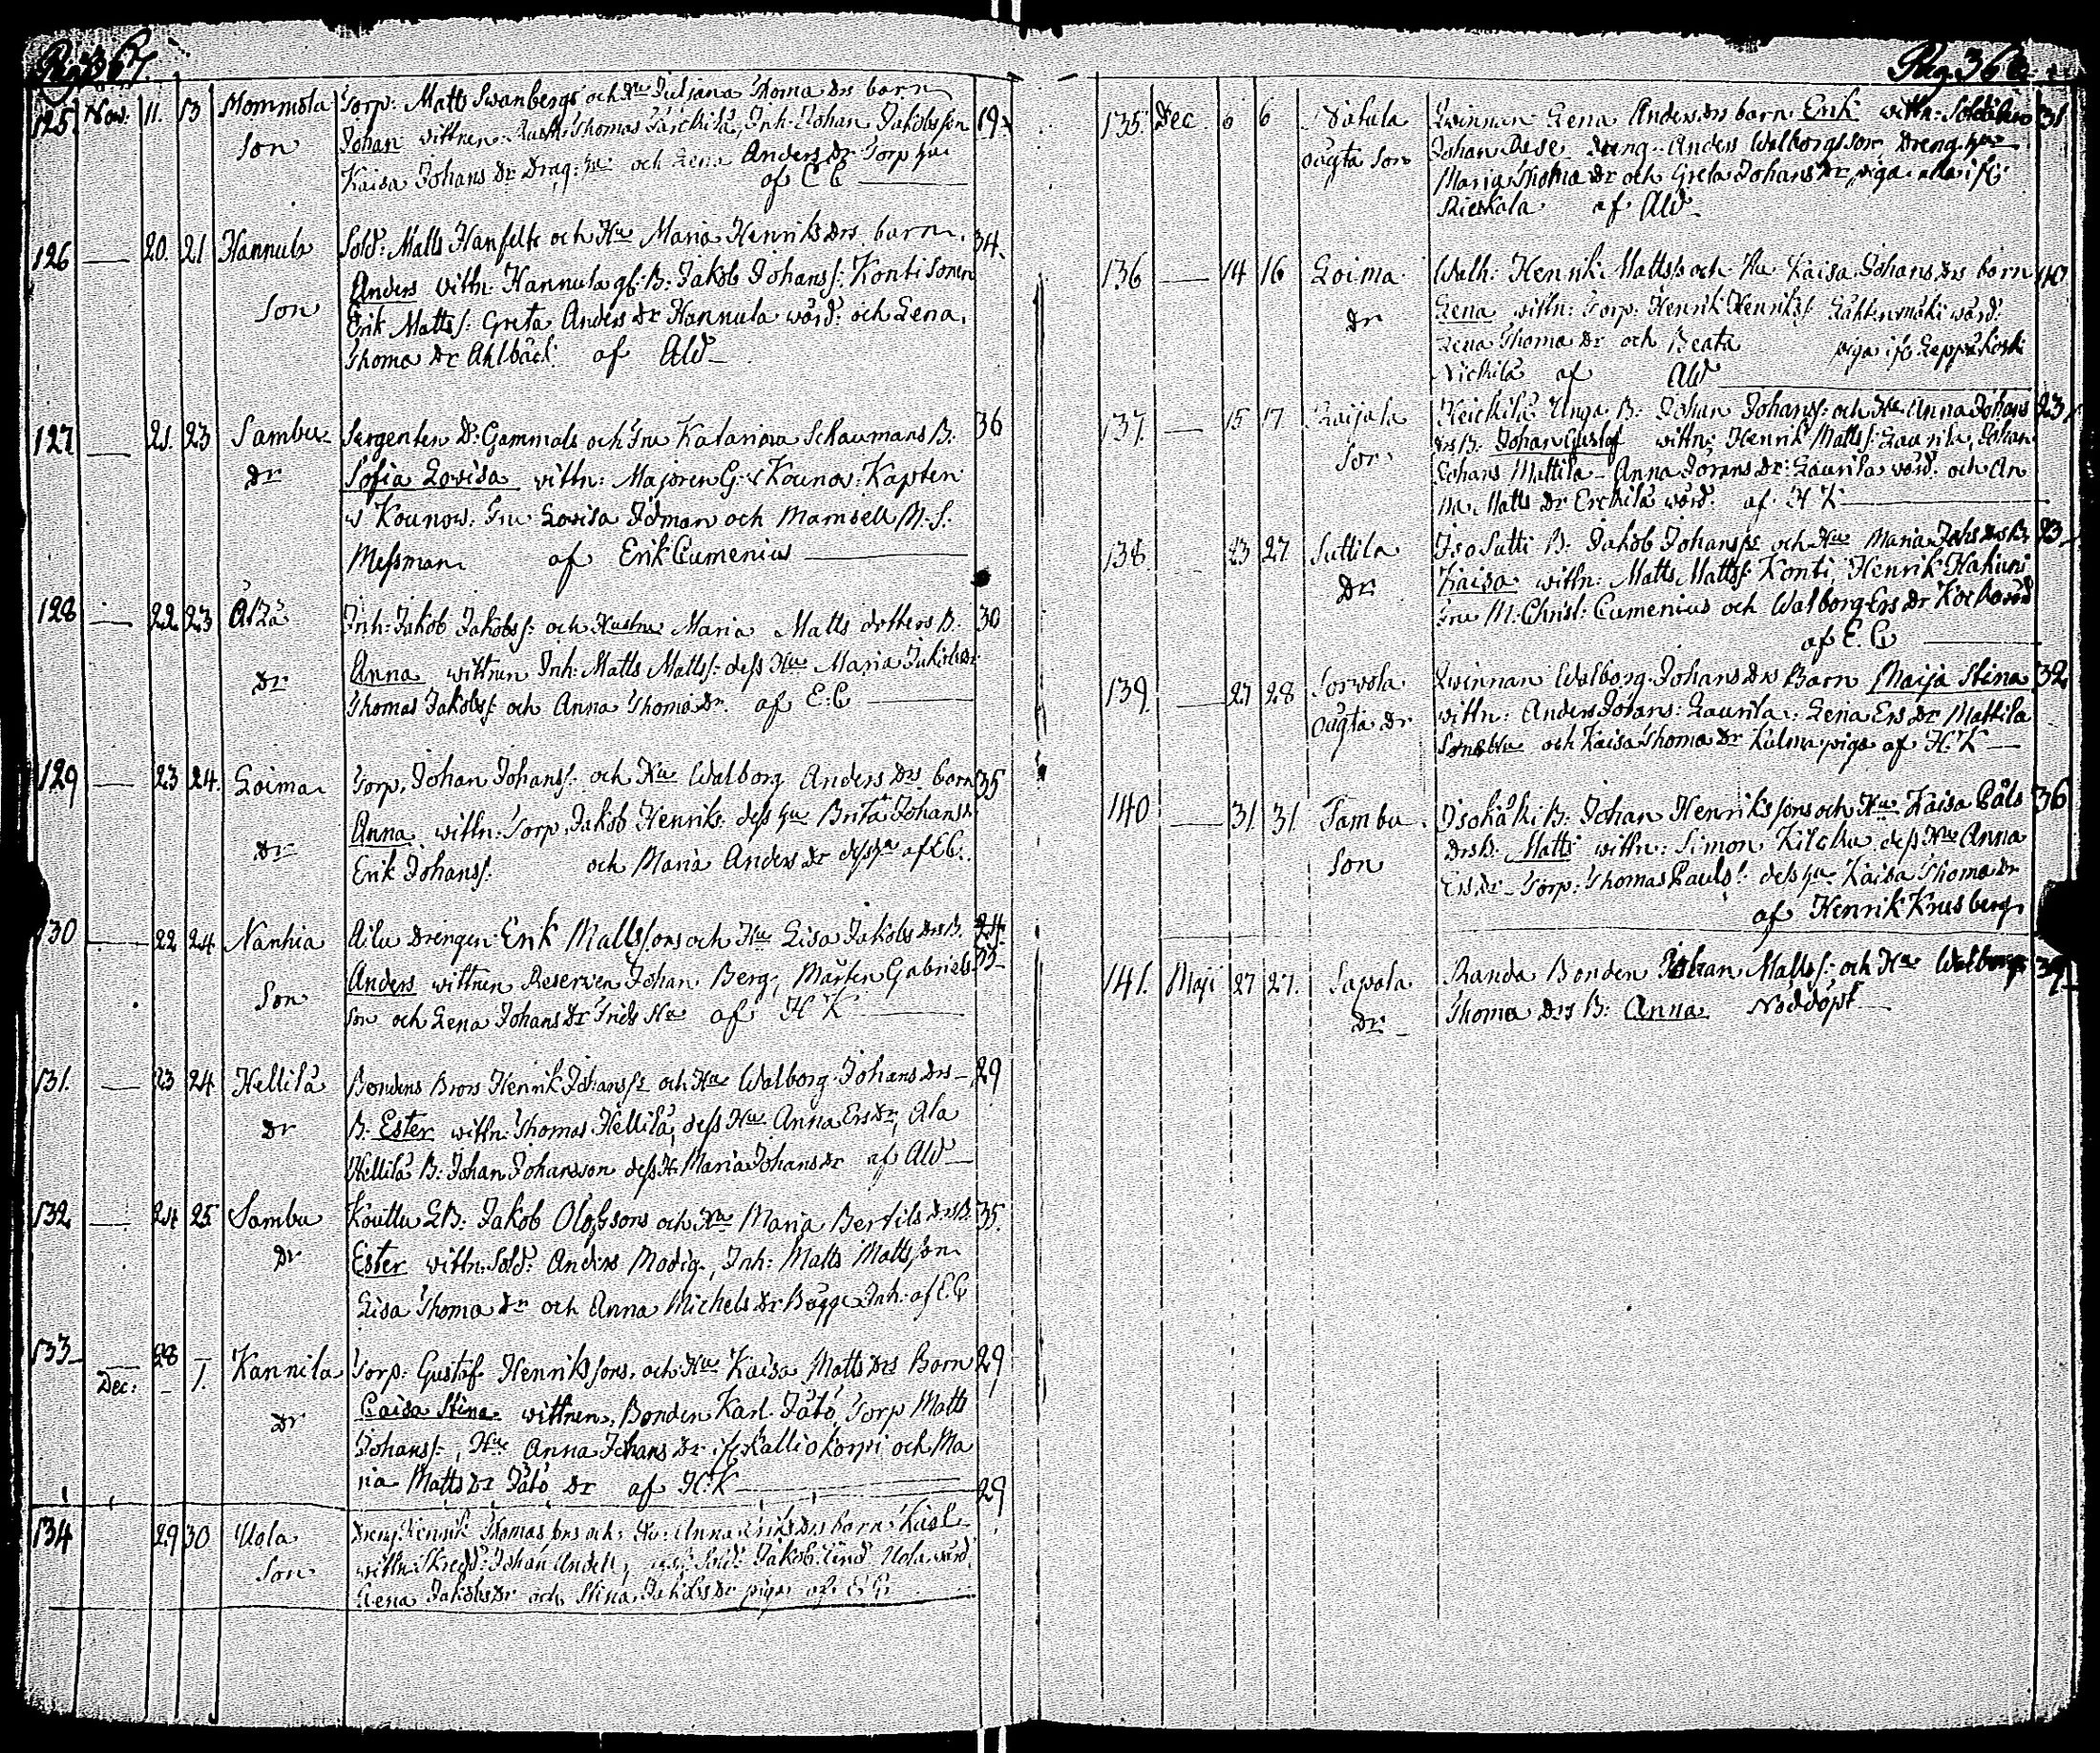 Pag. 367.
125. Nov. 11. 13 Mommola Torp: Matts Swanbergs och Hu Juliana Thoma drs barn 19.
Son Johan vittnen: Thomas Inh: Johan Jakobsson
Kaisa Johans dr Drag: hu och Lena Anders dr Torp hu
af EC
126 — 20. 21 Hannula Sold: Matts Hanfelts och Hu Maria Henriks drs barn 34.
Son Anders vittn: Hannula gl: B: Jakob Johanss: Konti Sonen
Erik Mattss: Greta Anders dr Hannula wärd: och Lena
Thoma dr Ahlbäck af Ald
127 — 21. 23 Sambu Sergenten D: Gammals och Fru Katarina Schaumans B: 36
dr Sofia Lovisa vittn: Majoren G: v Kounow: Kapten
v Kounow: Fru Lovisa Idman och Mamsell M. S:
Messman af Erik Cumenius
128 — 22 23 Inh: Jakob Jakobss: och Hustru Maria Matts dotters B. 30
dr Anna vittnen Inh: Matts Mattss: dess Hu Maria Jakobs dr
Thomas Jakobss: och Anna Thoma dr. af E: C
129 — 23 24. Loima Torp. Johan Johanss: och Hu Walborg Anders drs barn 35
dr Anna vittn: Torp. Jakob Henriks: dess hu Brita Johans dr
Erik Johanss: och Maria Anders dr dess hu af EC.
130 — 22 24 Nanhia Ailu Drengen Erik Mattssons och Hu Lisa Jakobs drs B.
Son Anders vittnen Reserven Johan Berg, Mårten Gabriels
son och Lena Johans dr Hu af H K
131. — 23 24 Hellilä Bondens Brors Henrik Johanss: och Hu Walborg Johans drs 29
dr B: Ester vittn: Thomas Hellilä, dess Hu Anna Ers dr, Ala
Hellilä B: Johan Johansson dess H: Maria Johans dr af Ald
132 — 24 25 Sambu Kouttu B: Jakob Olofssons och Hu Maria Bertils drs B. 35.
dr Ester vittn: Sold: Anders Modig, Inh: Matts Mattsson
Lisa Thoma dr och Anna Michels dr Bägge Inh: af E C
133 — 28 —
Dec: — 1. Kannila Torp: Gustaf Henrikssons och Hu Kaisa Matts drs Barn 29
dr Caisa Stina vittnen, Bonden Karl Torp Matts
Johanss:, Hu Anna Johans dr ifr Kalliokorpi och Ma
ria Matts dr dr af H: K
134 29 30 Uola Dreng Henrik Thomassons och Hu: Anna Eriks drs barn 29
Son vittn: Johan Sold: Jakob Lind Uola wärd
Lena Jakobs dr och Stina Jakobs dr piga af E C
Pag. 368
135. Dec. 6 6 oägta Son Qwinnan Lena Anders drs barn Erik vittn: 31
Johan dreng: Anders Walborgsson Dreng hu
Maria Thoma dr och Greta Johans dr, piga alla ifr:
Rieskala af Ald
136 — 14 16 Loima Henrik Mattss: och Hu Kaisa Johans drs barn 40
dr Lena vittn: Torp: Henrik Henrikss: wärd:
Lena Thoma dr och Beata piga ifr Leppäkoski
af Ald
137. — 15 17 Raijala Heickilä Unga B: Johan Johanss: och Hu Anna Johans 23
Son drs B: Johan Gustaf vittn: Henrik Mattss: Laurila, Johan
Johans Mattila Anna Jörans dr Laurila wärd: och An
na Matts dr wärd: af H K
138. 23 27. Suttila Iso Sutti B: Jakob Johanss: och Hu Maria drs B: 23
dr Kaisa vittn: Matts Mattss: Konti, Henrik Hakuni
Fru M: Christ: Cumenius och Walborg Ers dr wärd
af E. C
139. — 27 28 Sorvola Qwinnan Walborg Johans drs Barn Maija Stina 32
oägta dr vittn: Anders Johans: Laurila: Lena Ers dr Mattila
och Kaisa Thoma dr piga af H: K —
140 — 31. 31. Sambu Isokäki B: Johan Henrikssons och Hu Kaisa Påls 36
Son drs B. Matts vittn: Simon dess Hu Anna
Ers dr Torp: Thomas Pauls: dess hu Kaisa Thoma dr
af Henrik Krusberg
141. Maji 27 27. Sapola Randa Bonden Johan Mattss: och Hu Walborg 39.
dr Thoma drs B: Anna Nöddöpt